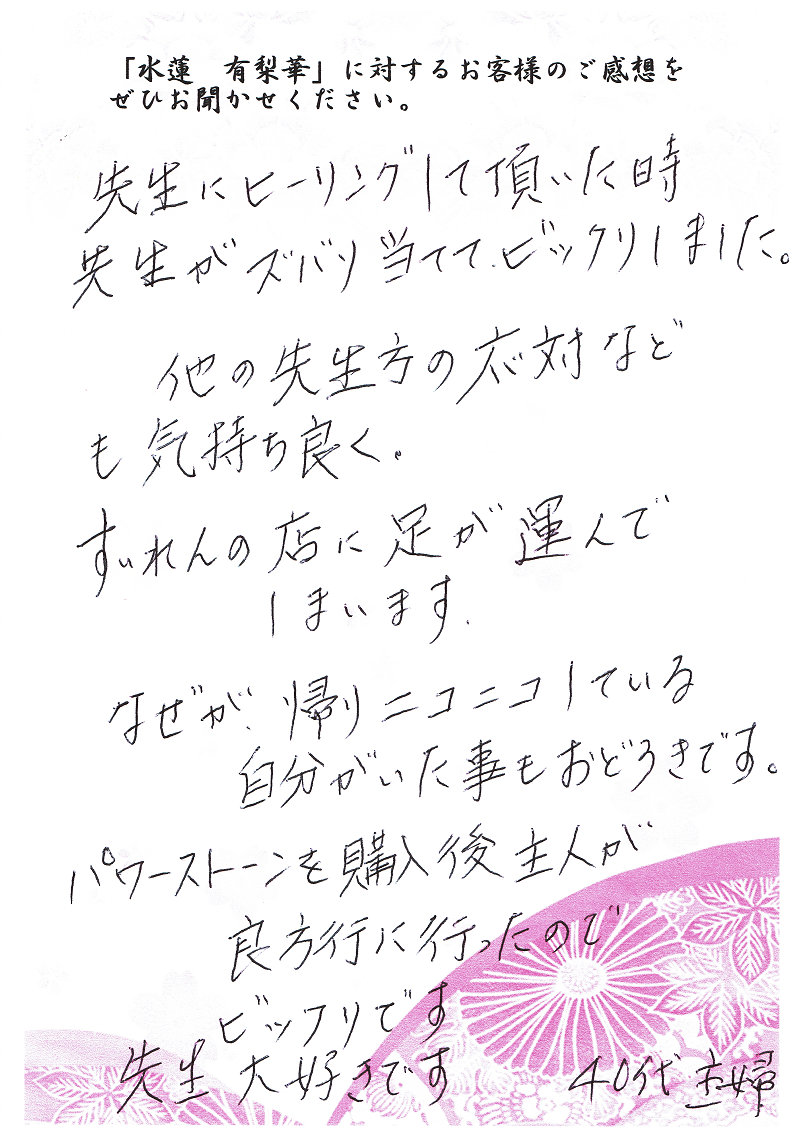 「水蓮　有梨華」に対するお客様のご感想を
ぜひお聞かせください。
先生にヒーリングして頂いた時
先生がズバリ当てて、ビックリしました。
他の先生方の応対など
も気持ち良く。
すいれんの店に足が運んで
しまいます.
なぜが、帰りニコニコしている
自分がいた事もおどろきです。
パワーストーンを購入後主人が
良方行に行ったので
ビックリです
先生大好きです
40代主婦